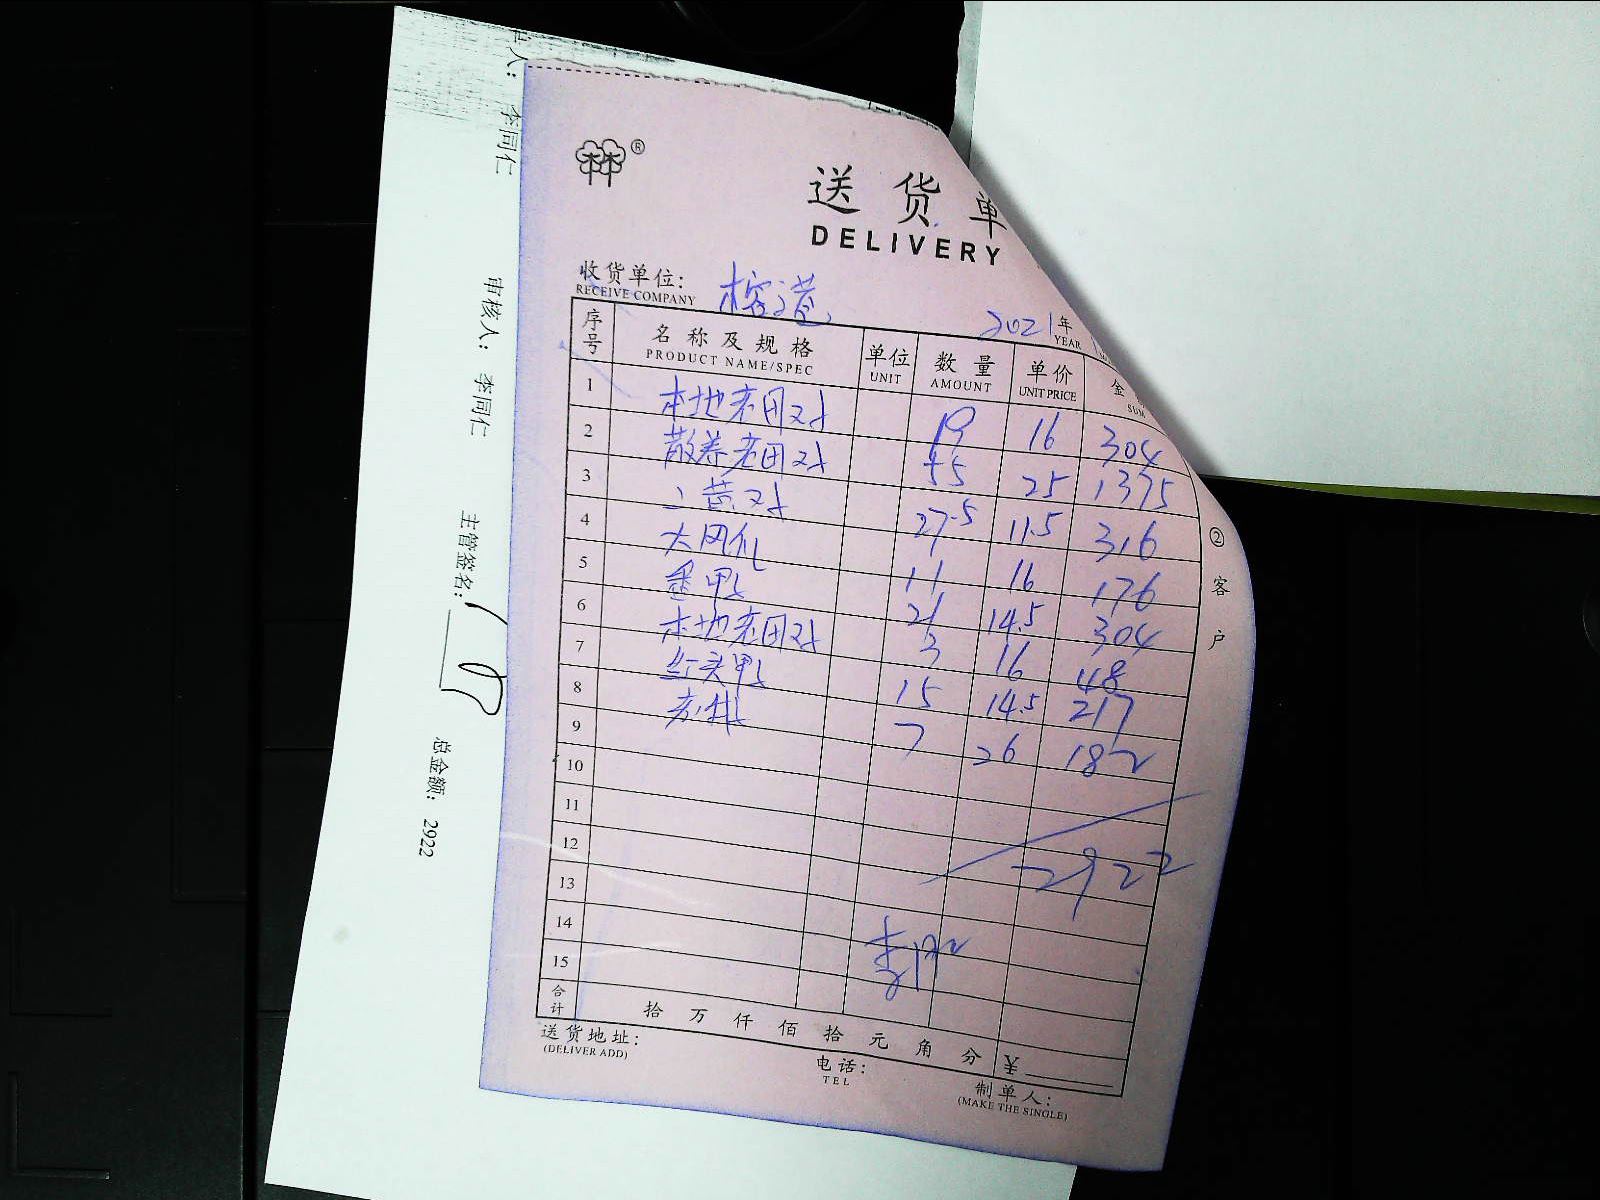 单人: 李同仁
审核人: 李同仁
主管签名:
总金额: 2922
®
送货单
DELIVERY
收货单位:
RECEIVE COMPANY
2021年
YEAR
序号 名称及规格 单位 数量 单价 金
PRODUCT NAME/SPEC UNIT AMOUNT UNIT PRICE SUM
1 本地老团对 19 16 304
2 散养老团对 55 25 1375
3 二黄对 27.5 11.5 316
4 11 16 176
5 21 14.5 304
6 本地老团对 3 16 48
7 红头鸭 15 14.5 217
8 7 26 182
9
10
11
12
2922
13
14
15
合计 拾万仟佰拾元角分 ¥
送货地址:
(DELIVER ADD)
电话:
TEL
制单人:
(MAKE THE SINGLE)
②客户